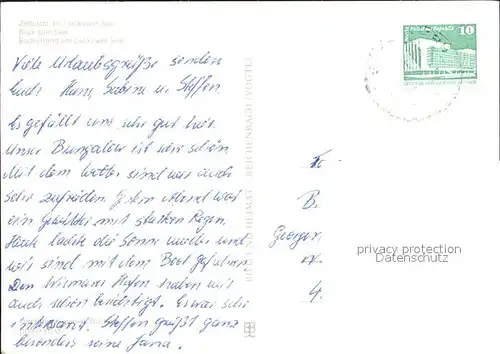 Zeltplatz am Luckower See
Blick zum See
Viele Urlaubsgrüße senden
Euch Hans, Sabine u. Steffen.
Es gefällt uns sehr gut hier.
Unser Bungalow ist sehr schön.
Mit dem Wetter sind wir auch
sehr zufrieden. Gestern Abend war
ein Gewitter mit starken Regen.
Heute lachte die Sonne wieder und
wir sind mit dem Boot gefahren.
Den Wismarer Hafen haben wir
auch schon besichtigt. Es war sehr
interessant. Steffen grüßt ganz
besonders seine Jana.
BILD UND HEIMAT REICHENBACH (VOGTL)
10
B.
Georgen
4.
privacy protection
Datenschutz